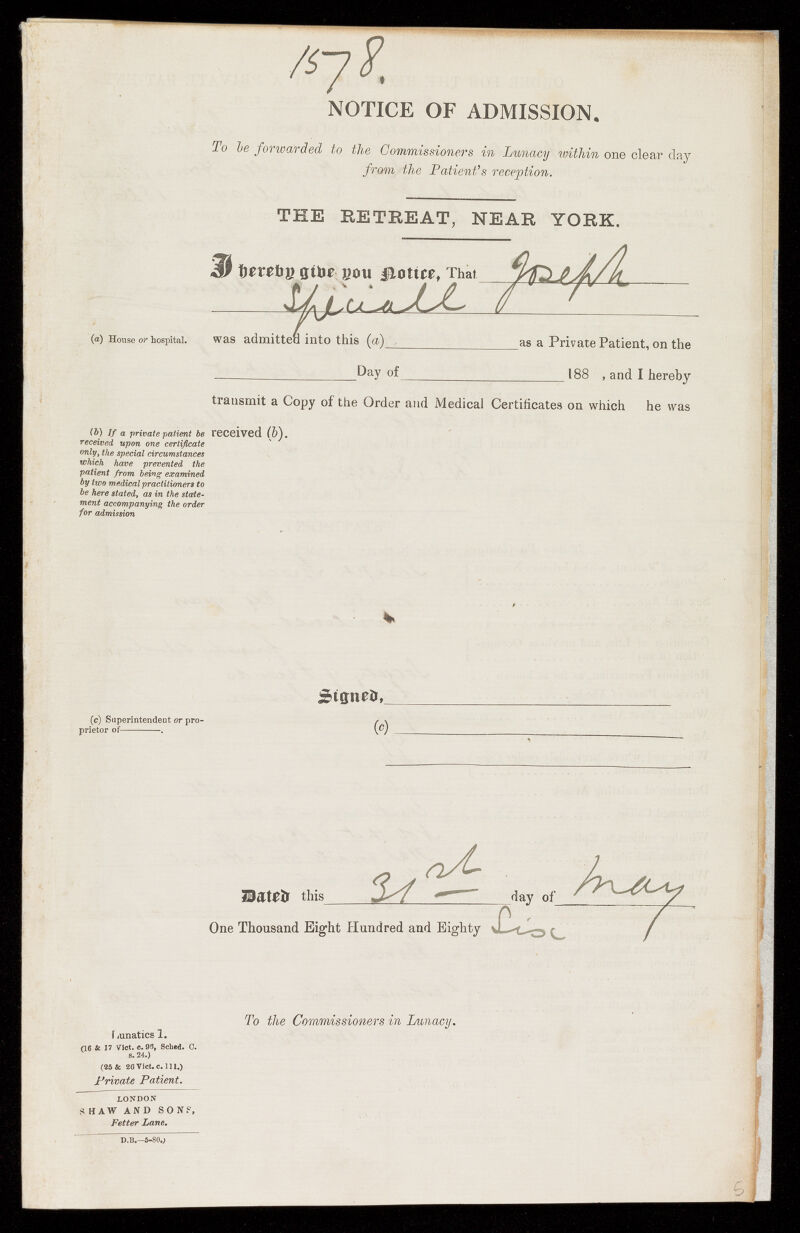 1578.
NOTICE OF ADMISSION.
To be forwarded to the Commissioners in Lunacy within one clear day
from the Patient's reception.
THE RETREAT, NEAR YORK.
I hereby give you Notice, That Joseph
Speciall
(a) House or hospital.
was admitted into this (a) as a Private Patient, on the
Day of 188 , and I hereby
transmit a Copy of the Order and Medical Certificates on which he was
received (b).
(b) If a private patient be
received upon one certificate
only, the special circumstances
which have prevented the
patient from being examined
by two medical practitioners to
be here stated, as in the state-
ment accompanying the order
for admission
Signed,
(c) Superintendent or pro-
prietor of———.
(c)
Dated this 31st day of May
One Thousand Eight Hundred and Eighty Six
To the Commissioners in Lunacy.
Lunatics 1.
(16 & 17 Vict. c. 96, Sched. C.
s. 24.)
(25 & 26 Vict. c. 111.)
Private Patient.
LONDON
SHAW AND SONS,
Fetter Lane.
D.B.—5-80.)
5